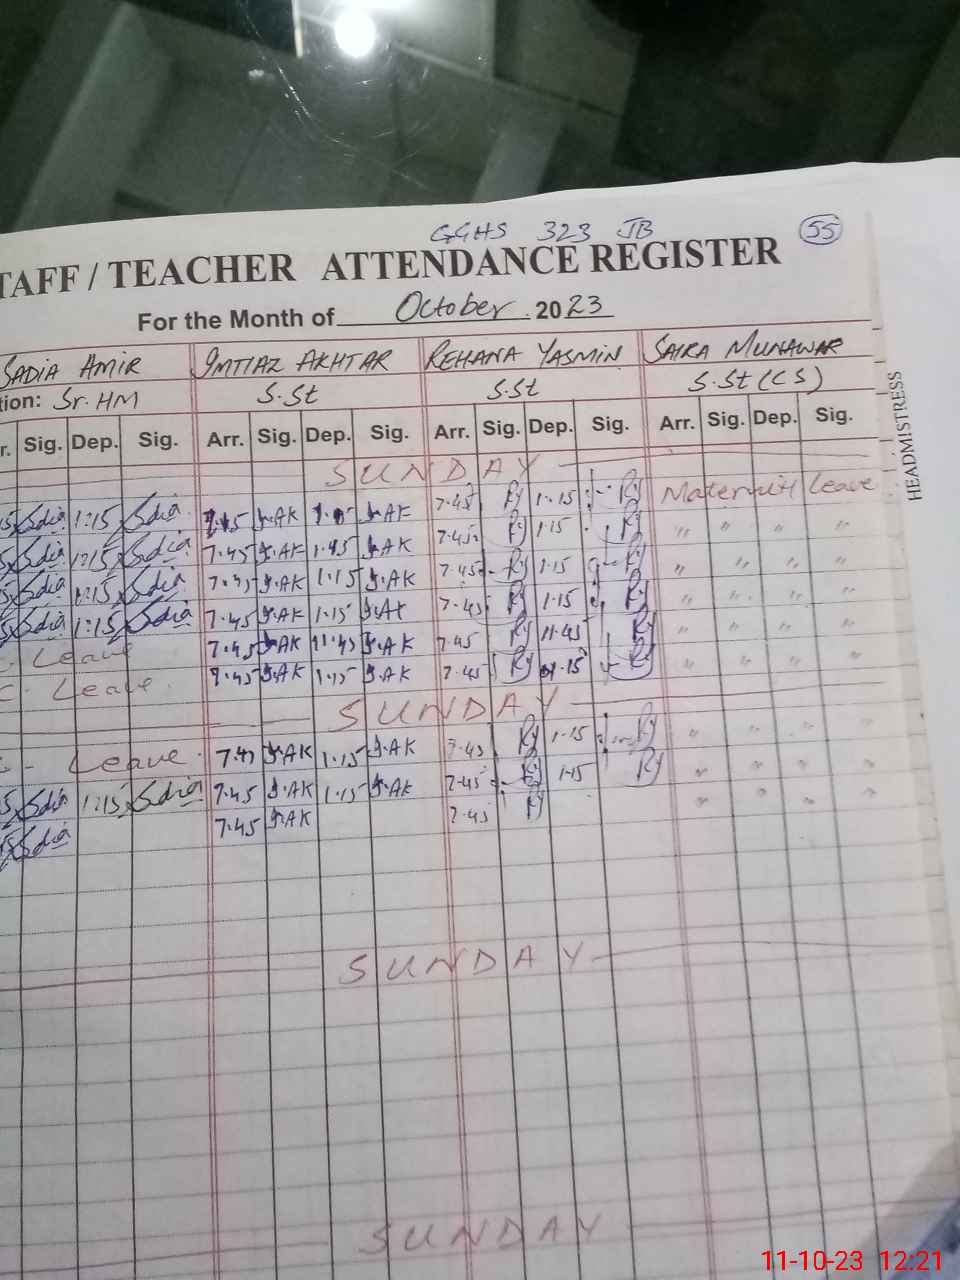 GGHS 323 JB 55
TAFF / TEACHER ATTENDANCE REGISTER
For the Month of October 2023
SADIA AMIR IMTIAZ AKHTAR REHANA YASMIN SAIRA MUNAWAR
tion: Sr. HM S.St S.St S.St (CS)
r. Sig. Dep. Sig. Arr. Sig. Dep. Sig. Arr. Sig. Dep. Sig. Arr. Sig. Dep. Sig.
HEADMISTRESS
SUNDAY
5 Sdia 1:15 Sdia 7.45 S.AK S.AK 7.45 Ry 1.15 Ry Maternity Leave
5 Sdia 1:15 Sdia 7.45 S.AK 1.45 S.AK 7.45 Ry 1.15 Ry " " " "
5 Sdia 1:15 Sdia 7.45 S.AK 1.15 S.AK 7.45 Ry 1.15 Ry " " " "
5 Sdia 1:15 Sdia 7.45 S.AK 1.15 S.AK 7.45 Ry 1.15 Ry " " " "
Leave 7.45 S.AK 11.45 S.AK 7.45 Ry 11.45 Ry " " " "
C- Leave 7.45 S.AK 1.15 S.AK 7.45 Ry 1.15 Ry " " " "
SUNDAY
C- Leave 7.45 S.AK 1.15 S.AK 7.45 Ry 1.15 Ry " " " "
5 Sdia 1:15 Sdia 7.45 S.AK 1.15 S.AK 7.45 Ry 1.15 Ry " " " "
Sdia 7.45 S.AK 7.45 Ry " " " "
SUNDAY
SUNDAY
11-10-23 12:21